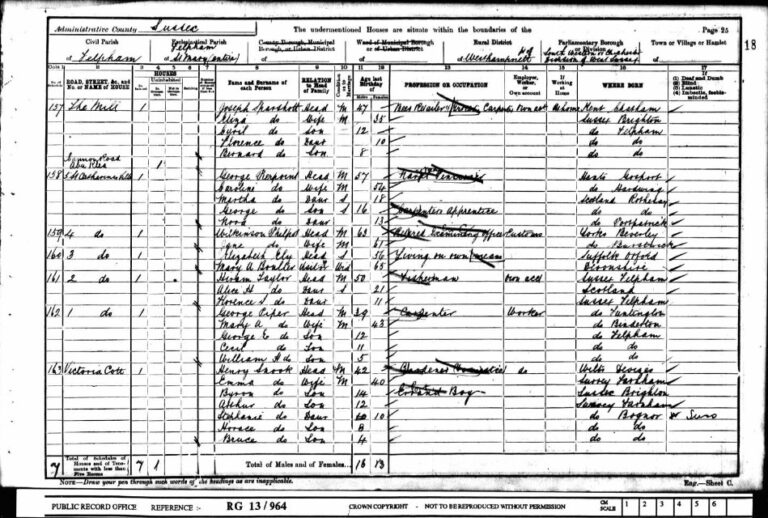 Administrative County Sussex
The undermentioned Houses are situate within the boundaries of the
Page 25
18
Civil Parish
of Felpham
Ecclesiastical Parish
Felpham
of St Mary
County Borough, Municipal Borough, or Urban District
of
Ward of Municipal Borough or of Urban District
of
Rural District
of Westhampnett
Parliamentary Borough or Division
Town or Village or Hamlet
of
ROAD, STREET, &c., and No. or NAME of HOUSE
HOUSES
Uninhabited
Name and Surname of each Person
RELATION to Head of Family
Age last Birthday of
PROFESSION OR OCCUPATION
Employer, Worker, or Own account
If Working at Home
WHERE BORN
(1) Deaf and Dumb
(2) Blind
(3) Lunatic
(4) Imbecile, feeble-minded
157 The Mill 1 Joseph Sparshott Head M 47 Carpenter Own acct At home Kent Chatham
Eliza do Wife M 35 Sussex Brighton
Cyril do Son 12 do Felpham
Florence do Daur 10 do do
Bernard do Son 8 do do
1
158 5 St Catherines Villa 1 George Pierpoint Head M 57 Naval Pensioner Hants Gosport
Caroline do Wife M 54 do
Martha do Daur S 18 Scotland Rothesay
George do Son S 16 Carpenter Apprentice do
do Daur 13 do Portpatrick
159 4 do 1 Wilkinson Philpot Head M 63 Retired Examining Officer Customs Yorks Beverley
Jane do Wife M 61 do
160 3 do 1 Elizabeth Ely Head S 56 Living on own means Suffolk Orford
Mary A Boulter Visitor Wid 65 Devonshire
161 2 do 1 Hiram Taylor Head M 50 Fisherman Own acct Sussex Felpham
Alice H do Daur S 21 Scotland
Florence S do Daur 11 Sussex Felpham
162 1 do 1 George Piper Head M 39 Carpenter Worker do Funtington
Mary A do Wife M 43 do Binderton
George E do Son 12 do Felpham
Cecil do Son 11 do do
William H do Son 5 do do
163 Victoria Cott 1 Henry Snook Head M 42 Gardener Domestic do Wilts
Emma do Wife M 40 Surrey Farnham
Byron do Son 14 Errand Boy Sussex Brighton
Arthur do Son 12 Surrey Farnham
Stephanie do Daur 10 do Bognor
Horace do Son 8 do do
Bruce do Son 4 do do
7 Total of Schedules of Houses and of Tenements with less than Five Rooms 7 1 Total of Males and of Females... 16 13
NOTE—Draw your pen through such words of the headings as are inapplicable.
Eng.—Sheet C.
PUBLIC RECORD OFFICE REFERENCE :- RG 13/964 CROWN COPYRIGHT - NOT TO BE REPRODUCED WITHOUT PERMISSION CM SCALE 1 2 3 4 5 6